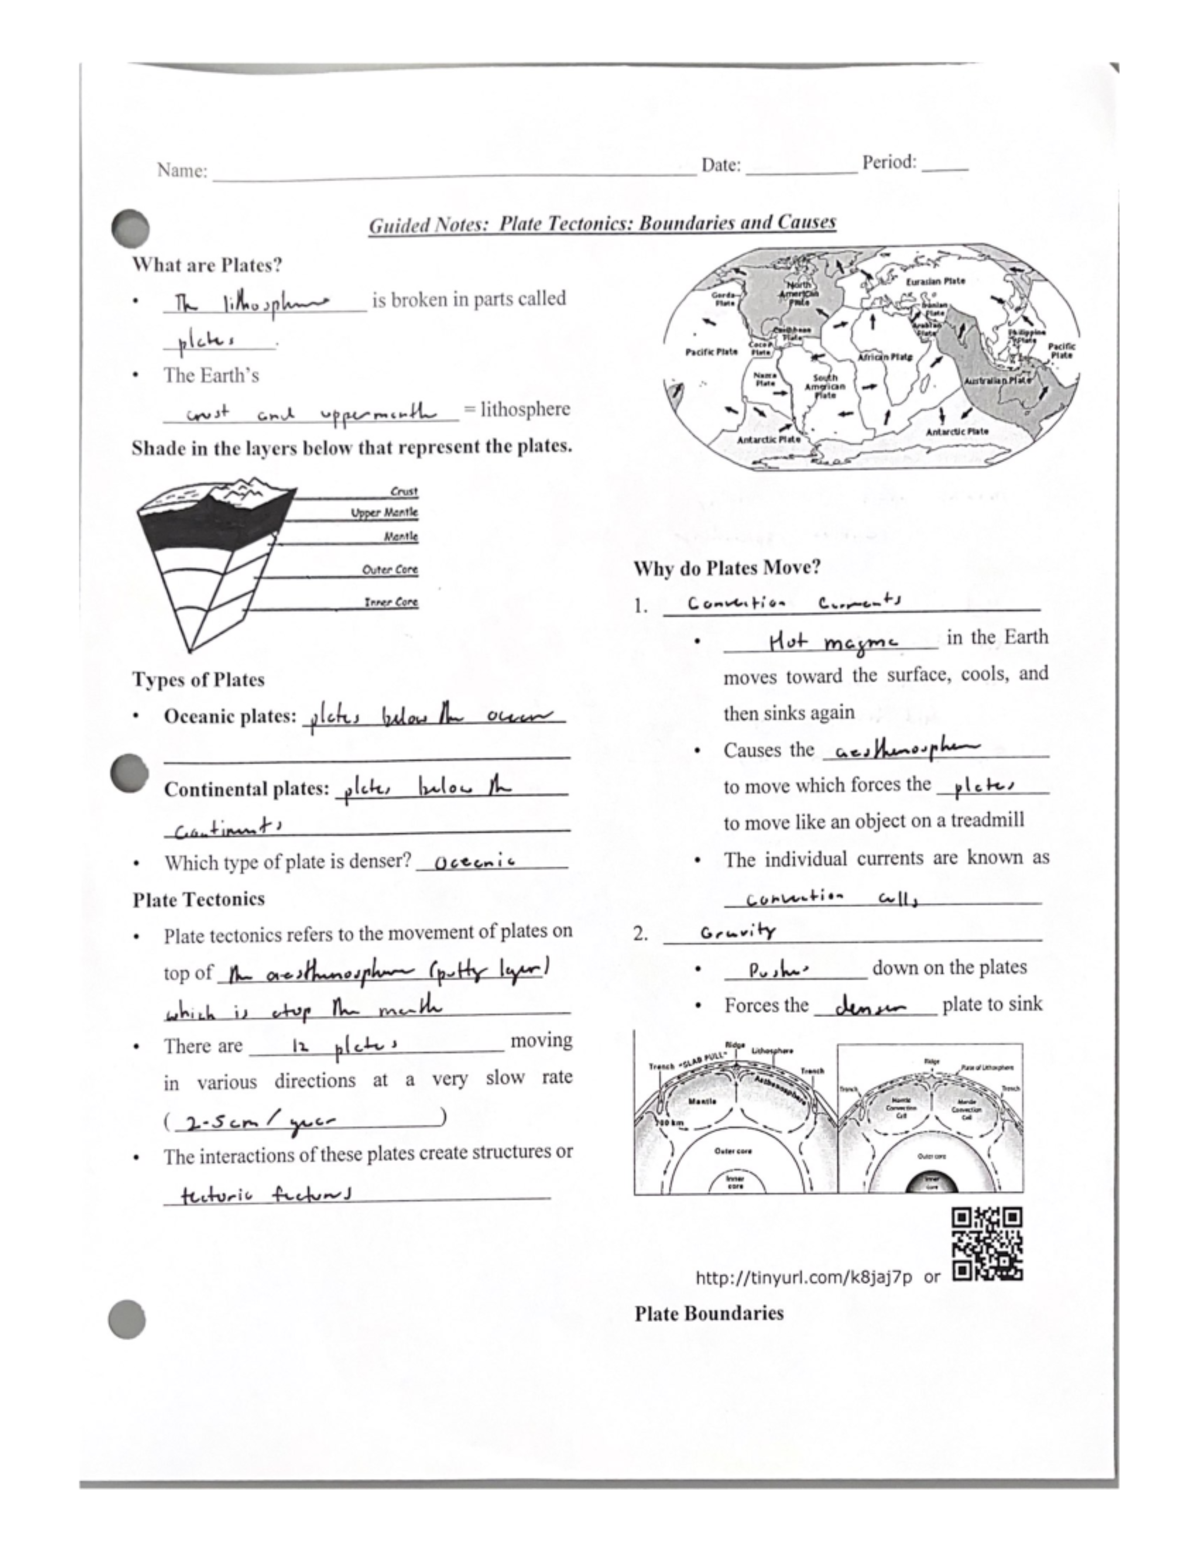 Name: Date: Period:
Guided Notes: Plate Tectonics: Boundaries and Causes
What are Plates?
• The lithosphere is broken in parts called
plates.
• The Earth's
crust and upper mantle = lithosphere
Shade in the layers below that represent the plates.
Crust
Upper Mantle
Mantle
Outer Core
Inner Core
Types of Plates
• Oceanic plates: plates below the ocean
Continental plates: plates below the
continents
• Which type of plate is denser? Oceanic
Plate Tectonics
• Plate tectonics refers to the movement of plates on
top of the aesthenosphere (putty layer)
which is atop the mantle
• There are 12 plates moving
in various directions at a very slow rate
( 2-5cm/year )
• The interactions of these plates create structures or
tectonic features
Gorda Plate
North American Plate
Eurasian Plate
Iranian Plate
Arabian Plate
Philippine Plate
Caribbean Plate
Cocos Plate
Pacific Plate
African Plate
Pacific Plate
Nazca Plate
South American Plate
Australian Plate
Antarctic Plate
Antarctic Plate
Why do Plates Move?
1. Convection Currents
• Hot magma in the Earth
moves toward the surface, cools, and
then sinks again
• Causes the aesthenosphere
to move which forces the plates
to move like an object on a treadmill
• The individual currents are known as
convection cells
2. Gravity
• Pushes down on the plates
• Forces the denser plate to sink
Trench "SLAB PULL" Ridge Lithosphere
Trench
Asthenosphere
Mantle
700 km
Outer core
Inner core
Ridge
Plate of Lithosphere
Trench
Trench
Mantle Convection Cell
Mantle Convection Cell
Outer core
Inner core
http://tinyurl.com/k8jaj7p or
Plate Boundaries